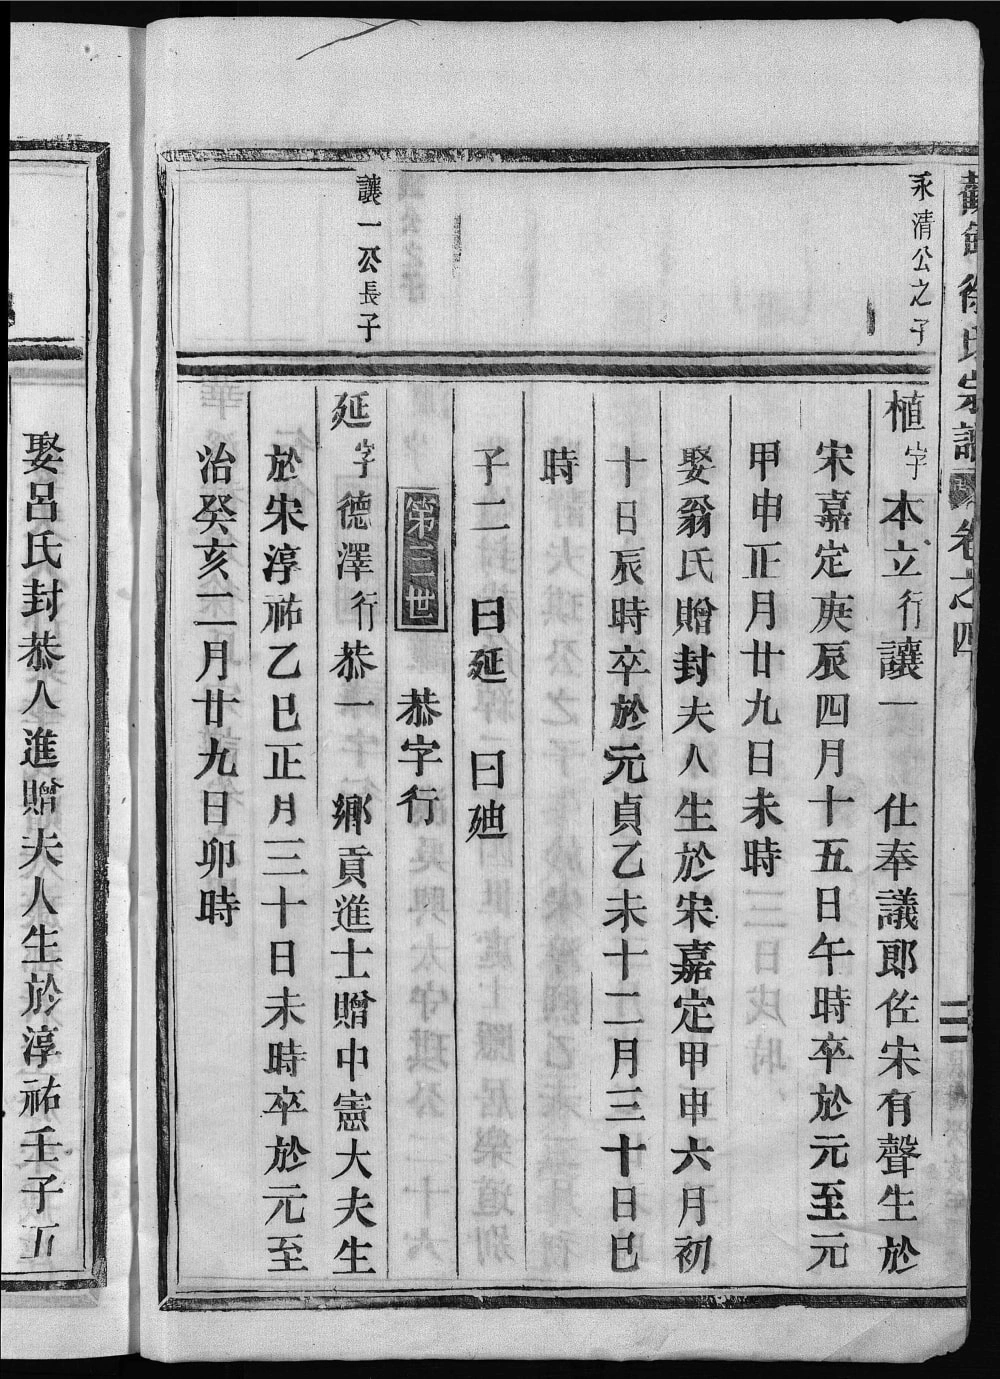 徐氏宗譜 卷之四
二
永清公之子
植字本立行讓一 仕奉議郎佐宋有聲生於
宋嘉定庚辰四月十五日午時卒於元至元
甲申正月廿九日未時
娶翁氏贈封夫人生於宋嘉定甲申六月初
十日辰時卒於元貞乙未十二月三十日巳
時
子二 曰延 曰廸
第三世 恭字行
讓一公長子
延字德澤行恭一 鄉貢進士贈中憲大夫生
於宋淳祐乙巳正月三十日未時卒於元至
治癸亥二月廿九日卯時
娶呂氏封恭人進贈夫人生於淳祐壬子五